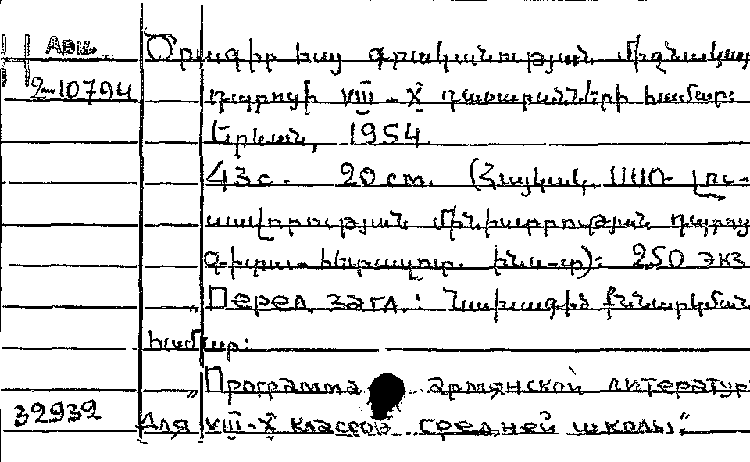 Арм. Ծրագիր հայ գրականության միջնակարգ
2-10794 դպրոցի VIII - X դասարանների համար:
Երևան, 1954
43 с. 20 cm. (Հայկական ՍՍՌ- լու-
սավորության մինիստրություն դպրոց
գիտա-հետազոտ. ինս-տ): 250 экз
„Перед загл.: Նախագիծ քննարկման
համար:
„Программа армянской литератур
32932 для VIII-X классов средней школы“